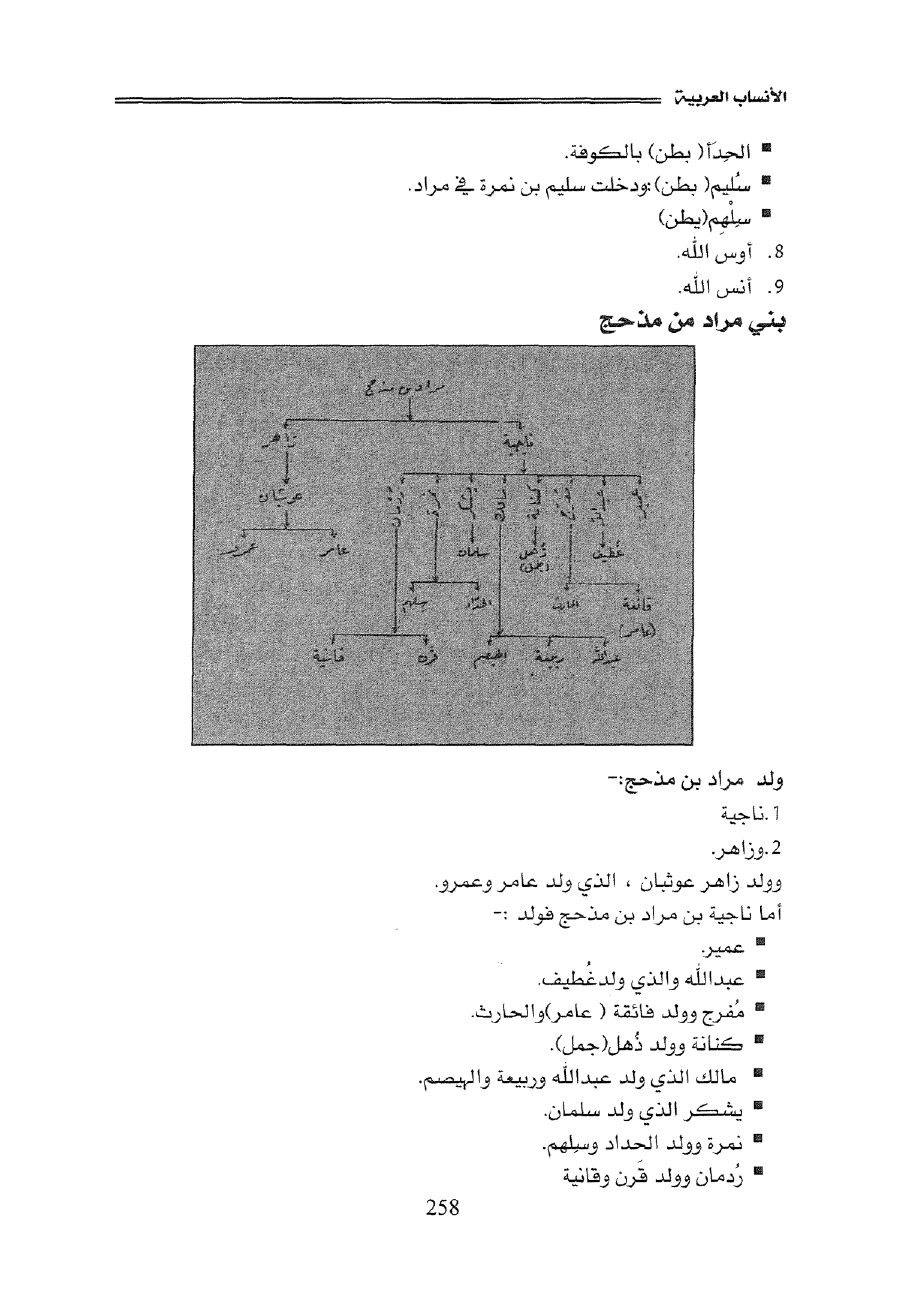 الأنساب العربية
▪ الحدَآ( بطن) بالكوفة.
▪ سُليم( بطن):ودخلت سليم بن نمرة في مراد.
▪ سِلْهِم(يطن)
8. آوس الله.
9. أنس الله.
بني مراد من مذحج
مراد بن مذحج
ناجية زاهر
عمير عبدالله مفرج كنانة مالك يشكر نمرة رُدْمان عوثبان
غُطيف ذُهل سلمان عامر عمرو
(جمل)
فائقة الحارث الحدّاد سلهم
(عامر)
عبدالله ربيعة الهيصم قرن قانية
ولد مراد بن مذحج:-
1.ناجية
2.وزاهر.
وولد زاهر عوثبان ، الذي ولد عامر وعمرو.
أما ناجية بن مراد بن مذحج فولد :-
▪ عمير.
▪ عبدالله والذي ولدغُطيف.
▪ مُفرج وولد فائقة ( عامر)والحارث.
▪ كنانة وولد ذُهل(جمل).
▪ مالك الذي ولد عبدالله وربيعة والهيصم.
▪ يشكر الذي ولد سلمان.
▪ نمرة وولد الحداد وسِلهم.
▪ رُدمان وولد قَرن وقانية
258